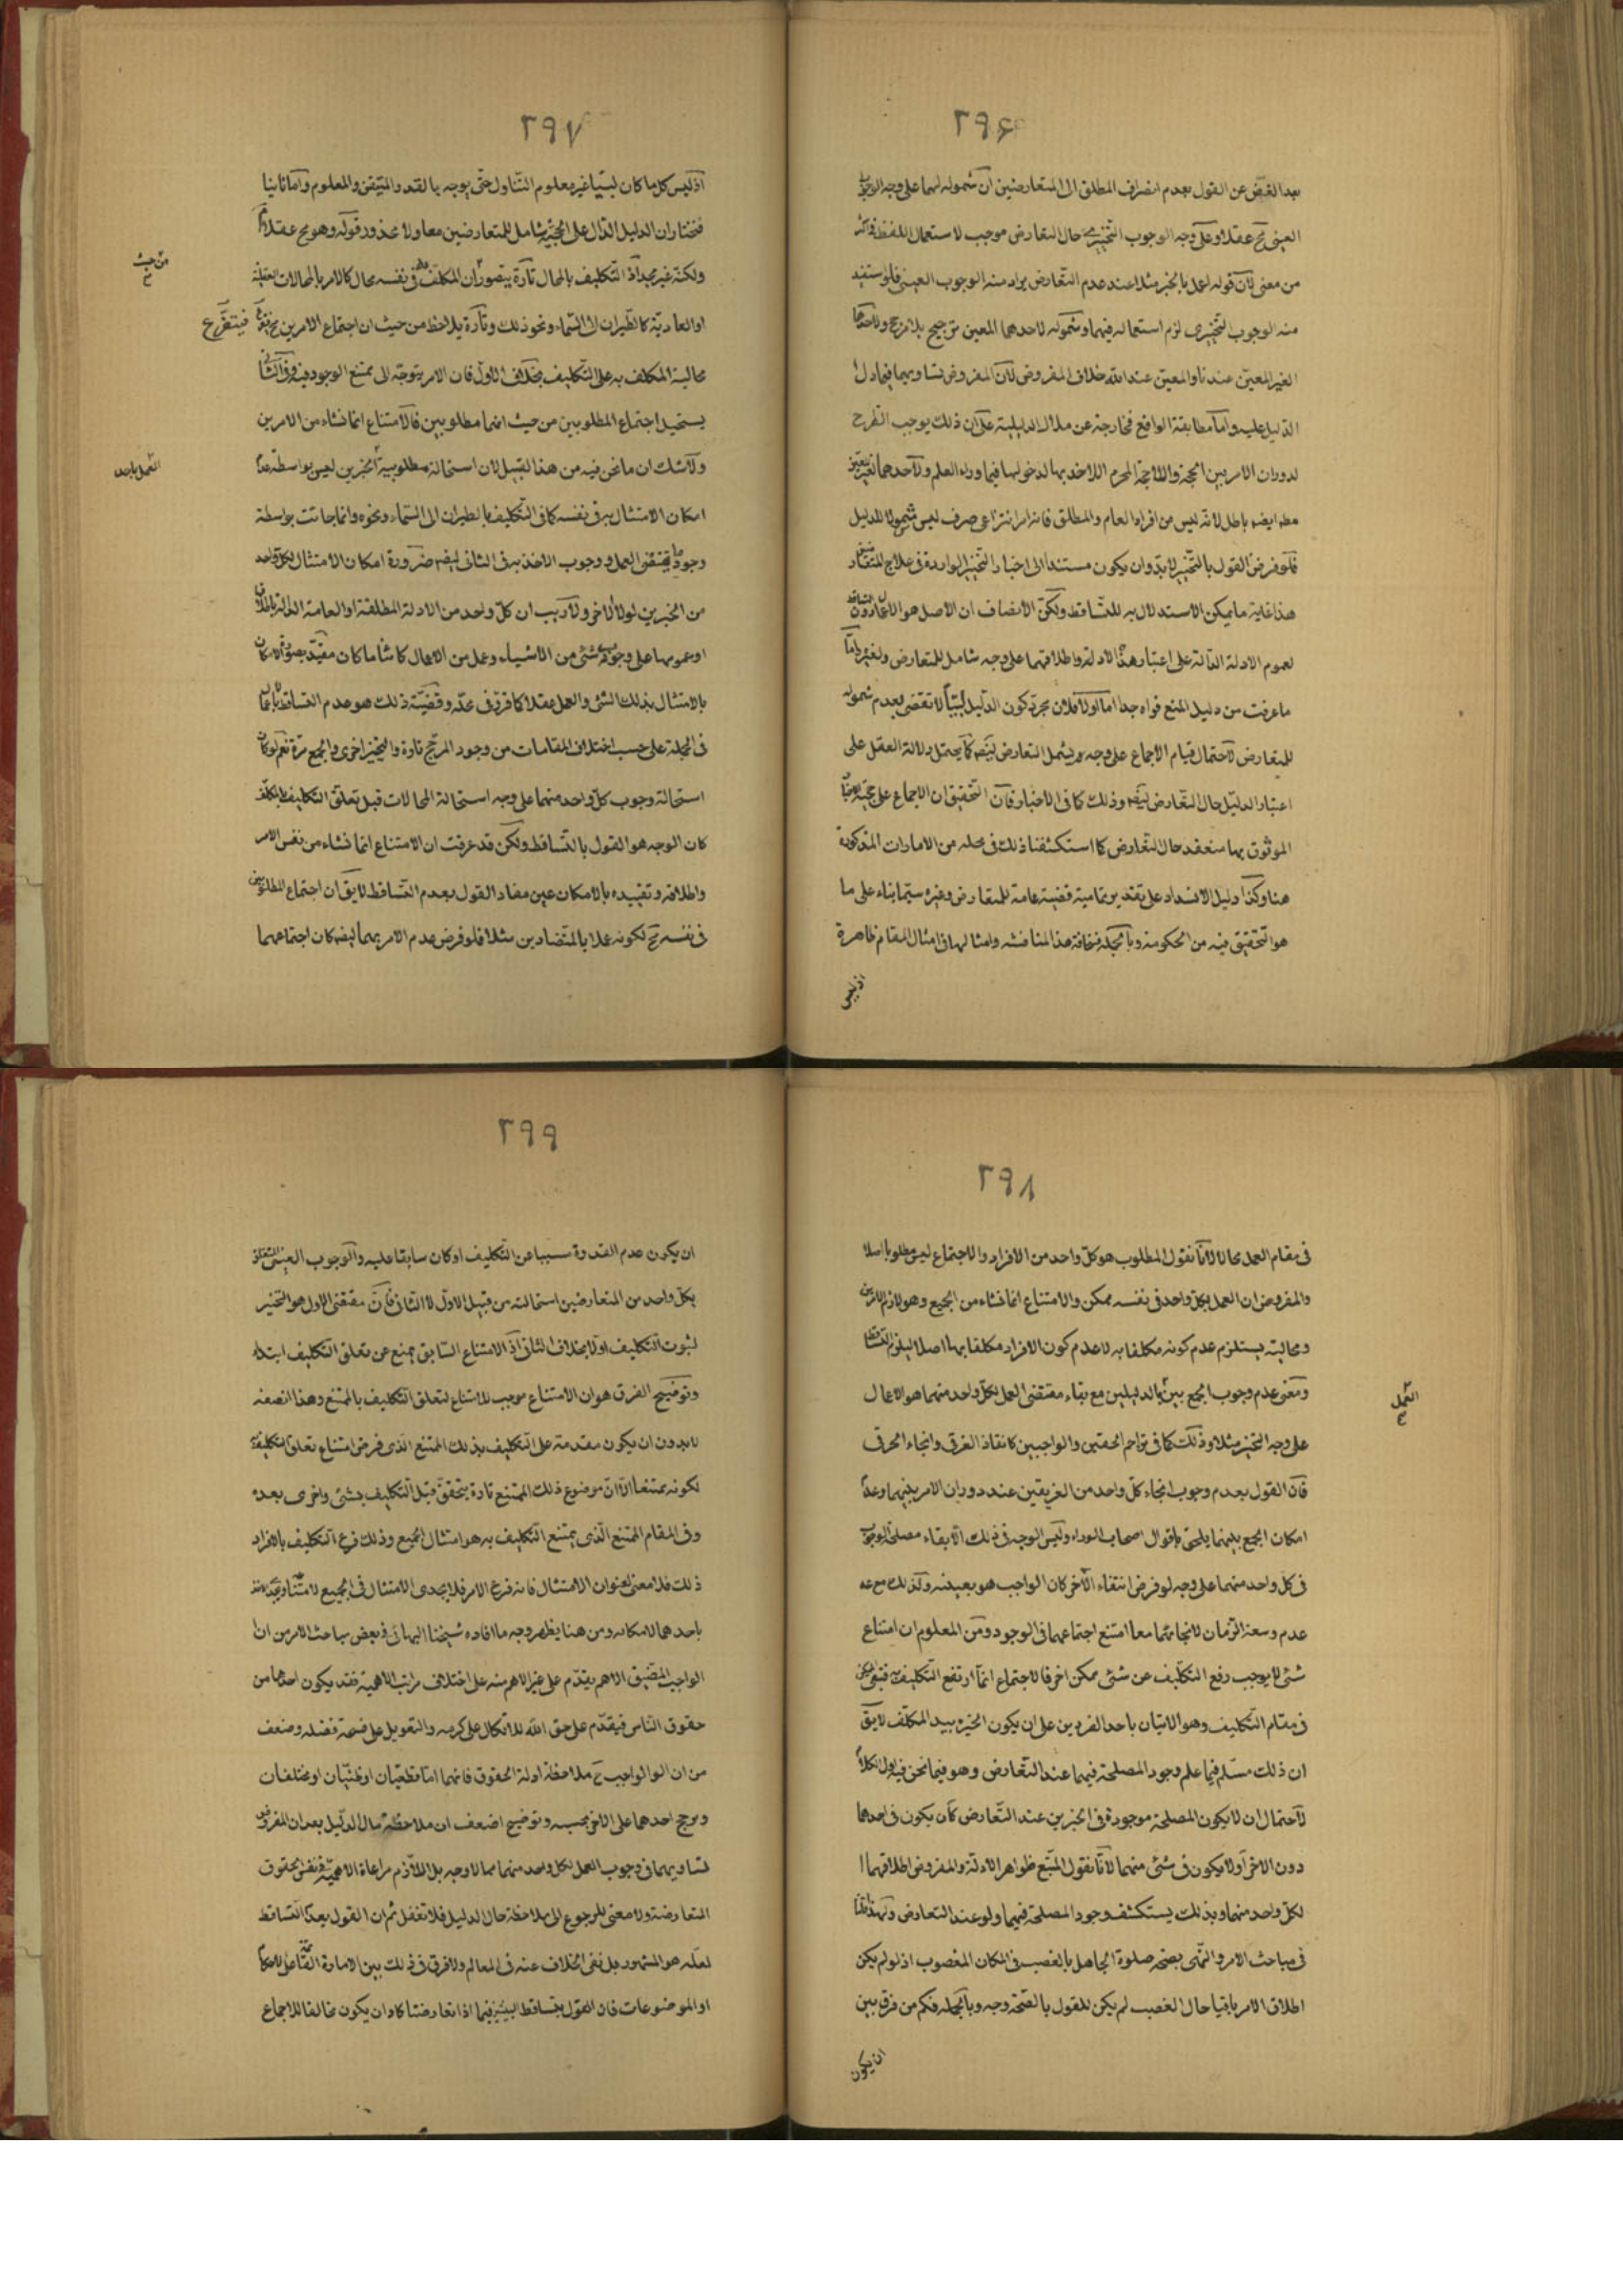 ٢٩۶
بعد الغض عن القول بعدم انصراف المطلق الى المتعارضين ان شموله لهما على وجه الوجوب
العينى مح عقلا وعلى وجه الوجوب التخييرى حال التعارض موجب لاستعمال اللفظ فى اكثر
من معنى لان قوله اعمل بالخبر مثلا عند عدم التعارض يراد منه الوجوب العينى فلو استفيد
منه الوجوب التخييرى لزم استعماله فيهما وشموله لاحدهما المعين ترجيح بلا مرجح ولاحدهما
الغير المعين عندنا والمعين عند الله خلاف المفروض لان المفروض تساويهما فيما دل
الدليل عليه واما مطابقة الواقع فخارجة عن مدلول الدليلية على ان ذلك يوجب الطرح
لدوران الامر بين الحجة واللاحجة المحرم الاخذ بها لدخولها فيما وراء العلم ولاحدهما الغير المعين
مط ايضه باطل لانه ليس من افراد العام والمطلق فانه امر انتزاعى صرف ليس مشمولا للدليل
فلو فرض القول بالتخيير لابد وان يكون مستندا الى اخبار التخيير الواردة فى علاج المتعارضين
هذا غاية ما يمكن الاستدلال به للتساقط ولكن الانصاف ان الاصل هو الاعمال دون التساقط
لعموم الادلة الدالة على اعتبار هذه الادلة واطلاقهما على وجه شامل للمتعارض ولغيره واما
ما عرفت من دليل المنع فواه جدا اما اولا فلان مجرد كون الدليل لبيا لا تقضى بعدم شموله
للمتعارض لاحتمال قيام الاجماع على وجه يشمل التعارض ايضه كما يحتمل دلالة العقل على
اعتبار الدليل حال التعارض ايضه وذلك كما فى الاخبار فان التحقيق ان الاجماع على حجية
الموثوق بها منعقد حال التعارض كما استكشفنا ذلك فى محله من الامارات المذكورة
هنا وكذا دليل الانسداد على تقدير تماميته قضيته عامة للمتعارض وغيره سيما بناء على ما
هو التحقيق فيه من الحكومة وبالجملة فسخافة هذه المناقشة وامثالها فى امثال المقام ظاهرة
اذ ليس
٢٩٧
اذ ليس كل ما كان لبيا غير معلوم التناول حتى يوجه بالقدر المتيقن والمعلوم واما ثانيا
فنختار ان الدليل الدال على الحجية شامل للمتعارضين معا ولا محذور قوله وهو مح عقلا
ولكنه غير مجد اذ التكليف بالمحال تارة يتصور ان المكلف به فى نفسه محال كالامر بالمحالات العقلية
او العادية كالطيران الى السماء ونحو ذلك وتارة يلاحظ من حيث ان اجتماع الامرين مح فيتفرع
محالية المكلف به على التكليف بخلاف الاول فان الامر يتوجه الى ممتنع الوجود فيه وفى الثانى
يستحيل اجتماع المطلوبين من حيث انهما مطلوبين فالامتناع انما نشاء من الامرين
ولا شك ان ما نحن فيه من هذا القبيل لان استحالة مطلوبية الخبرين ليس بواسطة عدم
امكان الامتثال به فى نفسه كما فى التكليف بالطيران الى السماء ونحوه وانما جائت بواسطة
وجود ما يقتضى العمل ووجوب الاخذ به فى الثانى ايضه ضرورة امكان الامتثال لكل واحد
من الخبرين لولا الاخر ولا ريب ان كل واحد من الادلة المطلقة او العامة الدالة باطلاقها
او عمومها على وجوب شئ من الاشياء وعمل من الاعمال كائنا ما كان مقيد بصورة الامكان
بالامتثال بذلك الشئ والعمل عقلا كما قرر فى محله وقضية ذلك هو عدم التساقط
فى الجملة على حسب اختلاف المقامات من وجود المرجح تارة والتخيير اخرى والجمع مرة نعم لو كان
استحالة وجوب كل واحد منهما على وجه استحالة المحالات قبل تعلق التكليف بالمكلف
كان الوجه هو القول بالتساقط ولكن قد عرفت ان الامتناع انما نشاء من نفس الامر
واطلاقه وتقييده بالامكان عين مفاد القول بعدم التساقط لا يق ان اجتماع المطلوبين
فى نفسه مح لكونه عملا بالمتضادين مثلا فلو فرض عدم الامر بهما ايضه كان اجتماعهما
من حيث
العمل باحد
٢٩٨
فى مقام العمل محالا لانا نقول المطلوب هو كل واحد من الافراد والاجتماع ليس مطلوبا اصلا
والمفروض ان العمل بكل واحد فى نفسه ممكن والامتناع انما نشاء من الجميع وهو لازم الامرين
ومحاليته يستلزم عدم كونه مكلفا به لا عدم كون الافراد مكلفا بها اصلا ليلزم التساقط
ومعنى عدم وجوب الجمع بين العمل بالدليلين مع بقاء مقتضى العمل لكل واحد منهما هو الاعمال
على وجه التخيير مثلا وذلك كما فى تزاحم الحقين والواجبين كانقاذ الغرقى وانجاء الحرقى
فان القول بعدم وجوب انجاء كل واحد من الغريقين عند دوران الامر بينهما وعدم
امكان الجمع بينهما يلحق باقوال اصحاب السوداء وليس الوجه فى ذلك الا بقاء مصلحة الوجوب
فى كل واحد منهما على وجه لو فرض انتفاء الاخر كان الواجب هو بعينه وكذلك مع
عدم وسعة الزمان لانجائهما معا امتنع اجتماعهما فى الوجود ومن المعلوم ان امتناع
شئ لا يوجب رفع التكليف عن شئ ممكن اخر فالاجتماع انما ارتفع التكليف به فبقى الممكن
فى مقام التكليف وهو الاتيان باحد الفردين على ان يكون الخيرة بيد المكلف لا يق
ان ذلك مسلم فيما علم وجود المصلحة فيهما عند التعارض وهو فيما نحن فيه اول الكلام
لاحتمال ان لا يكون المصلحة موجودة فى الخبرين عند التعارض كان يكون فى احدهما
دون الاخر او لا يكون فى شئ منهما لانا نقول المتبع ظواهر الادلة والمفروض اطلاقهما
لكل واحد منهما وبذلك يستكشف وجود المصلحة فيهما ولو عند التعارض ولهذا قلنا
فى مباحث الامر والنهى بصحة صلوة الجاهل بالغصب فى المكان المغصوب اذ لو لم يكن
اطلاق الامر باقيا حال الغصب لم يكن للقول بالصحة وجه وبالجملة فكم من فرق بين
ان يكون
العمل
٢٩٩
ان يكون عدم القدرة مسببا عن التكليف او كان سابقا عليه والوجوب العينى المتعلق
بكل واحد من المتعارضين استحالته من قبيل الاول لا الثانى فان مقتضى الاول هو التخيير
لثبوت التكليف اولا بخلاف الثانى اذ الامتناع السابق يمنع عن تعلق التكليف ابتداء
وتوضيح الفرق هو ان الامتناع موجب لامتناع تعلق التكليف بالممتنع وهذا الصفة
لابد وان يكون مقدمة على التكليف بذلك الممتنع الذى فرض امتناع تعلق التكليف به
لكونه ممتنعا الا ان موضوع ذلك الممتنع تارة يتحقق قبل التكليف بشئ واخرى بعده
وفى المقام الممتنع الذى يمتنع التكليف به هو امتثال الجميع وذلك فرع التكليف بالافراد
ذلك فلا معنى لعنوان الامتثال فانه فرع الامر فلا يجدى الامتثال فى الجميع لامتناعه
باحدهما لامكانه ومن هنا يظهر وجه ما افاده شيخنا البهائى فى بعض مباحث الامر من ان
الواجب المضيق الاهم يقدم على غير الاهم منه على اختلاف مراتب الاهمية فقد يكون احدهما من
حقوق الناس فيقدم على حق الله للاتكال على كرمه والتعويل على فسحة فضله وضعف
من ان الواجب ح ملاحظة ادلة الحقوق فانهما اما قطعيان او ظنيان او مختلفان
ويرجح احدهما على الاخر بحسبه وتوضيح اضعف ان ملاحظة حال الدليل بعد ان المفروض
تساويهما فى وجوب العمل لكل واحد منهما مما لا وجه بل اللازم مراعاة الاهمية فى نفس الحقوق
المتعارضة ولا معنى للرجوع الى ملاحظة حال الدليل فلا تغفل ثم ان القول بعدم التساقط
لعله هو المشهور بل نفى الخلاف عنه فى المعالم ولا فرق فى ذلك بين الامارة القائمة على الاحكام
او الموضوعات فان القول بتساقط البينتين فيما اذا تعارضتا كاد ان يكون مخالفا للاجماع